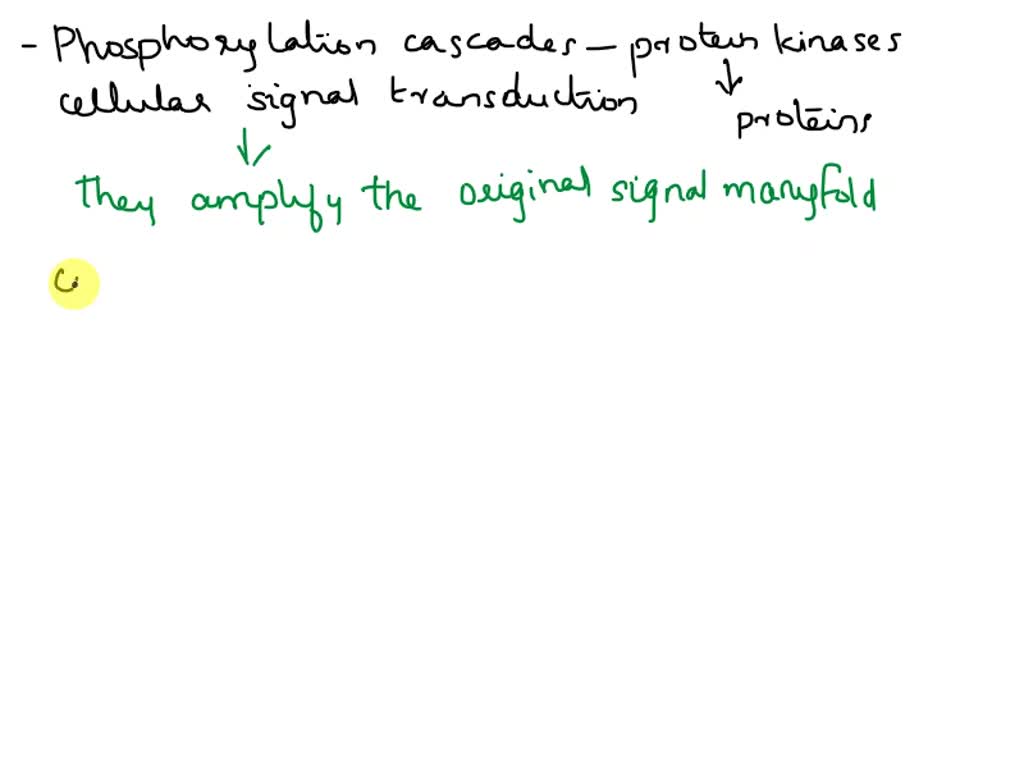 - Phosphorylation cascades - protein kinases
cellular signal transduction
proteins
They amplify the original signal manyfold